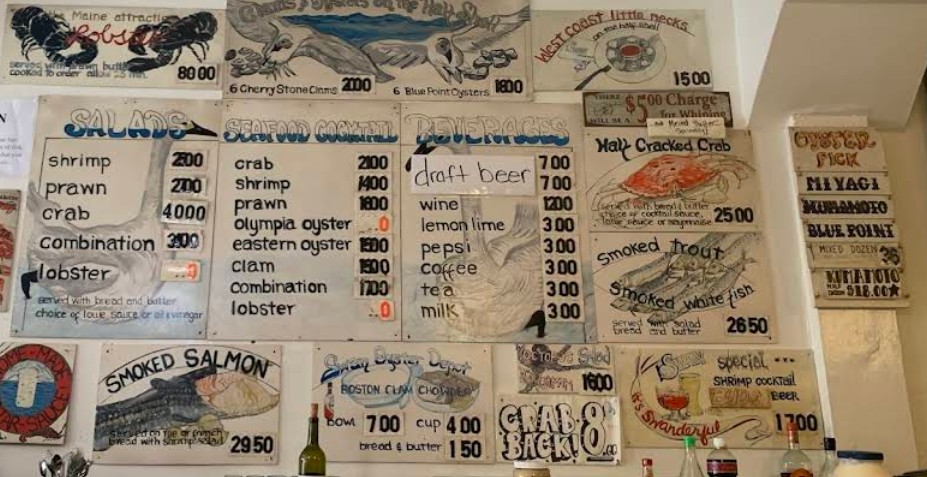 Maine attraction
Lobster
cooked to order
80 00
Clams & Oysters on the Half Shell
6 Cherry Stone Clams 2000
6 Blue Point Oysters 1800
West Coast little necks
on the half shell
15 00
SALADS
shrimp
prawn
crab 4000
combination
lobster
served with bread and butter
choice of louie sauce or oil & vinegar
SEAFOOD COCKTAIL
crab
shrimp 1400
prawn 1800
olympia oyster 0
eastern oyster
clam
combination 1700
lobster 0
BEVERAGES
7 00
draft beer 7 00
wine 1200
lemon lime 3 00
pepsi 3 00
coffee 3 00
tea 3 00
milk 3 00
$5.00 Charge
for Whining
Half Cracked Crab
served with bread & butter
choice of cocktail sauce,
louie sauce or mayonnaise
25 00
Smoked trout
Smoked white fish
served with salad
bread and butter
26 50
OYSTER
PICK
MIYAGI
KUMAMOTO
BLUE POINT
MIXED DOZEN 36
KUMAMOTO
$18.00
SMOKED SALMON
bread with shrimp salad
29 50
Swan Oyster Depot
BOSTON CLAM CHOWDER
bowl 7 00 cup 4 00
bread & butter 1 50
Salad
1600
CRAB
BACK! 8.00
special
SHRIMP COCKTAIL
BEER
it's Swanderful
17 00